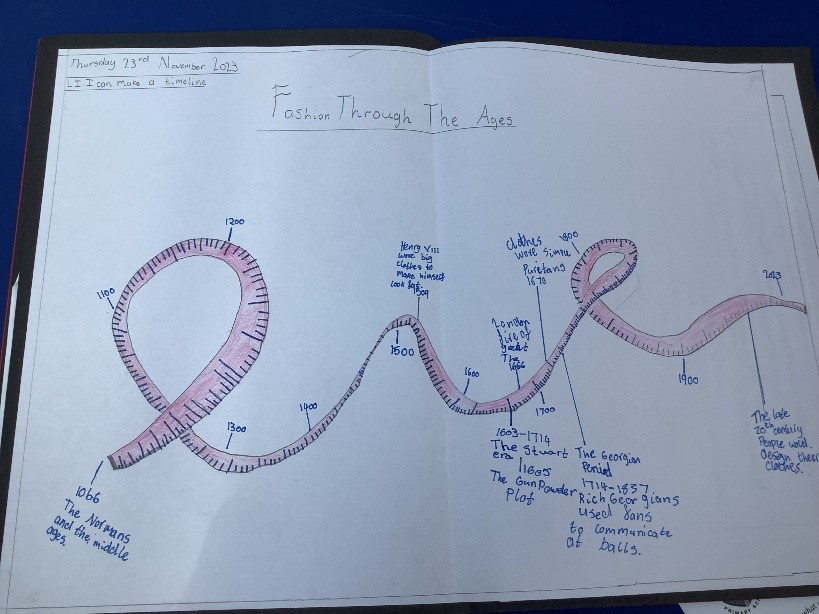 Thursday 23rd November 2023
LI I can make a timeline
Fashion Through The Ages
1200
1100
1066
The Normans
and the middle
ages.
1300
1400
Henry VIII
wore big
clothes to
make himself
look fat.
1509
1500
1600
London
fire of
great
The
1666
Clothes
were
Puretans
1670
1700
1603-1714
The Stuart
era
1605
The GunPowder
Plot
The Georgian
Period
1714-1837
Rich Georgians
used fans
to communicate
at balls.
1800
1900
2023
The late
20th century
People
design their
clothes.
PRIMARY